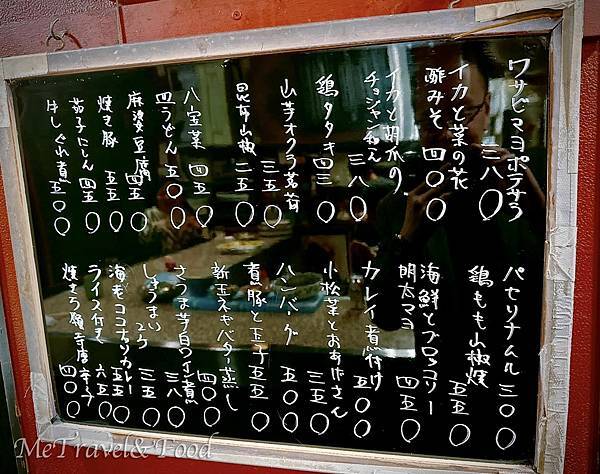 ワサビマヨポテサラ 三八〇
イカと菜の花
酢みそ 四〇〇
イカと胡瓜の
チョジャン和え 三八〇
鶏タタキ 四三〇
山芋オクラ茗荷 三五〇
昆布山椒 二五〇
八宝菜 四五〇
皿うどん 五〇〇
麻婆豆腐 四五〇
焼き豚 五五〇
茄子にしん 四五〇
はしぐれ煮 五五〇
パセリナムル 三〇〇
鶏もも山椒焼 五五〇
海鮮とブロッコリー
明太マヨ 四五〇
カレイ煮付け 六五〇
小松菜とおあげさん 三五〇
ハンバーグ 五五〇
煮豚と玉子 五五〇
新玉ネギバター蒸し 四〇〇
さつま芋白ワイン煮 三八〇
しゅうまい 2ケ 三五〇
海老ココナッツカレー 五五〇
ライス付き 六五〇
焼きうどん 四〇〇
MeTravel&Food